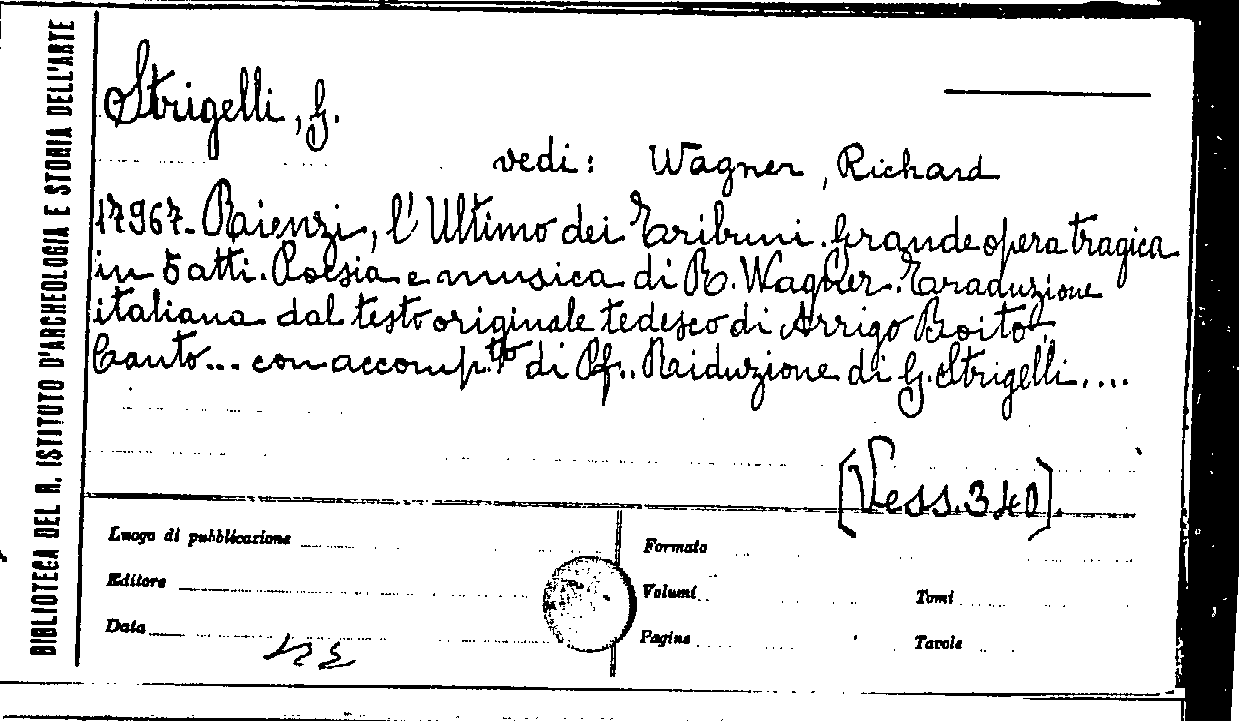 BIBLIOTECA DEL R. ISTITUTO D'ARCHEOLOGIA E STORIA DELL'ARTE
Strigelli, G.
vedi: Wagner, Richard
17967. Rienzi, l'Ultimo dei Tribuni. Grande opera tragica
in 5 atti. Poesia e musica di R. Wagner. Traduzione
italiana dal testo originale tedesco di Arrigo Boito.
Canto... con accomp.to di Pf.. Riduzione di G. Strigelli....
[Vess. 340].
Luogo di pubblicazione
Formato
Editore
Volumi
Tomi
Data
Pagine
Tavole